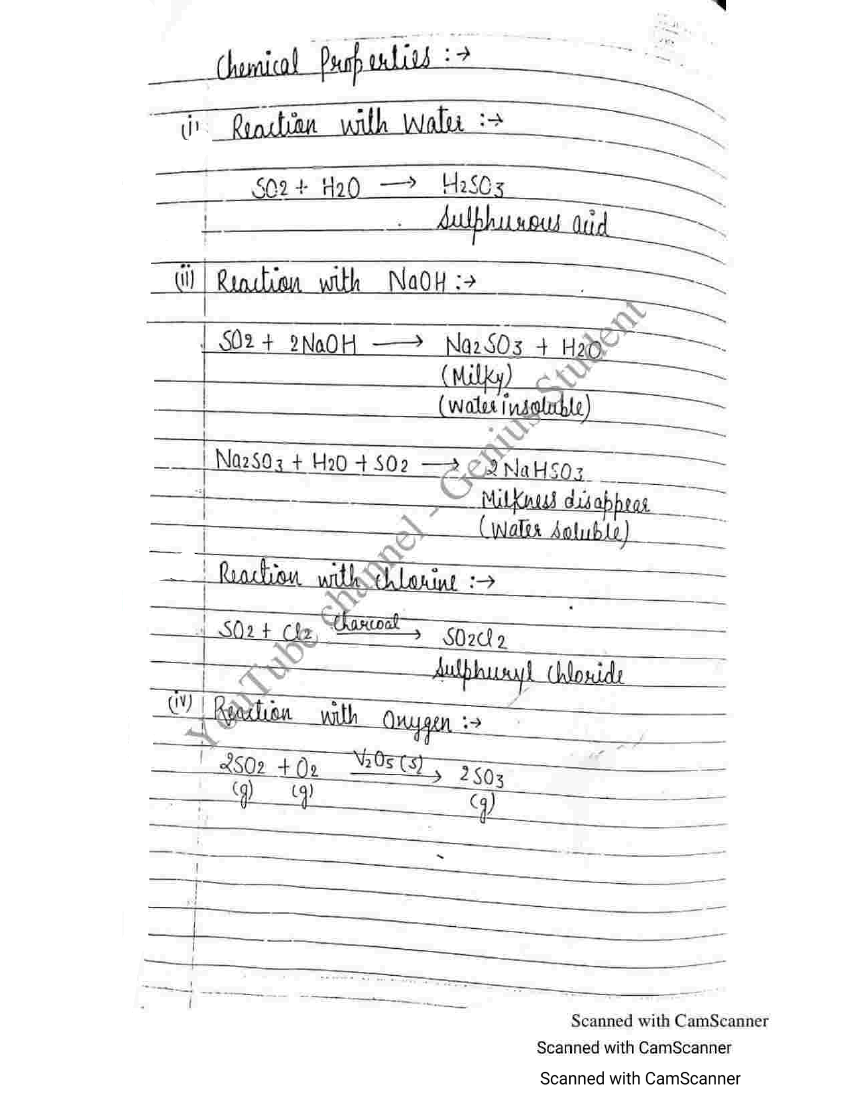 Chemical Properties :→
(i) Reaction with Water :→
SO2 + H2O ⟶ H2SO3
Sulphurous acid
(ii) Reaction with NaOH :→
SO2 + 2NaOH ⟶ Na2SO3 + H2O
(Milky)
(Water insoluble)
Na2SO3 + H2O + SO2 ⟶ 2NaHSO3
Milkness disappear
(Water soluble)
Reaction with chlorine :→
SO2 + Cl2 Charcoal⟶ SO2Cl2
Sulphuryl chloride
(iv) Reaction with Oxygen :→
2SO2 + O2 V2O5(s)⟶ 2SO3
(g) (g) (g)
YouTube channel - Genius Student
Scanned with CamScanner
Scanned with CamScanner
Scanned with CamScanner